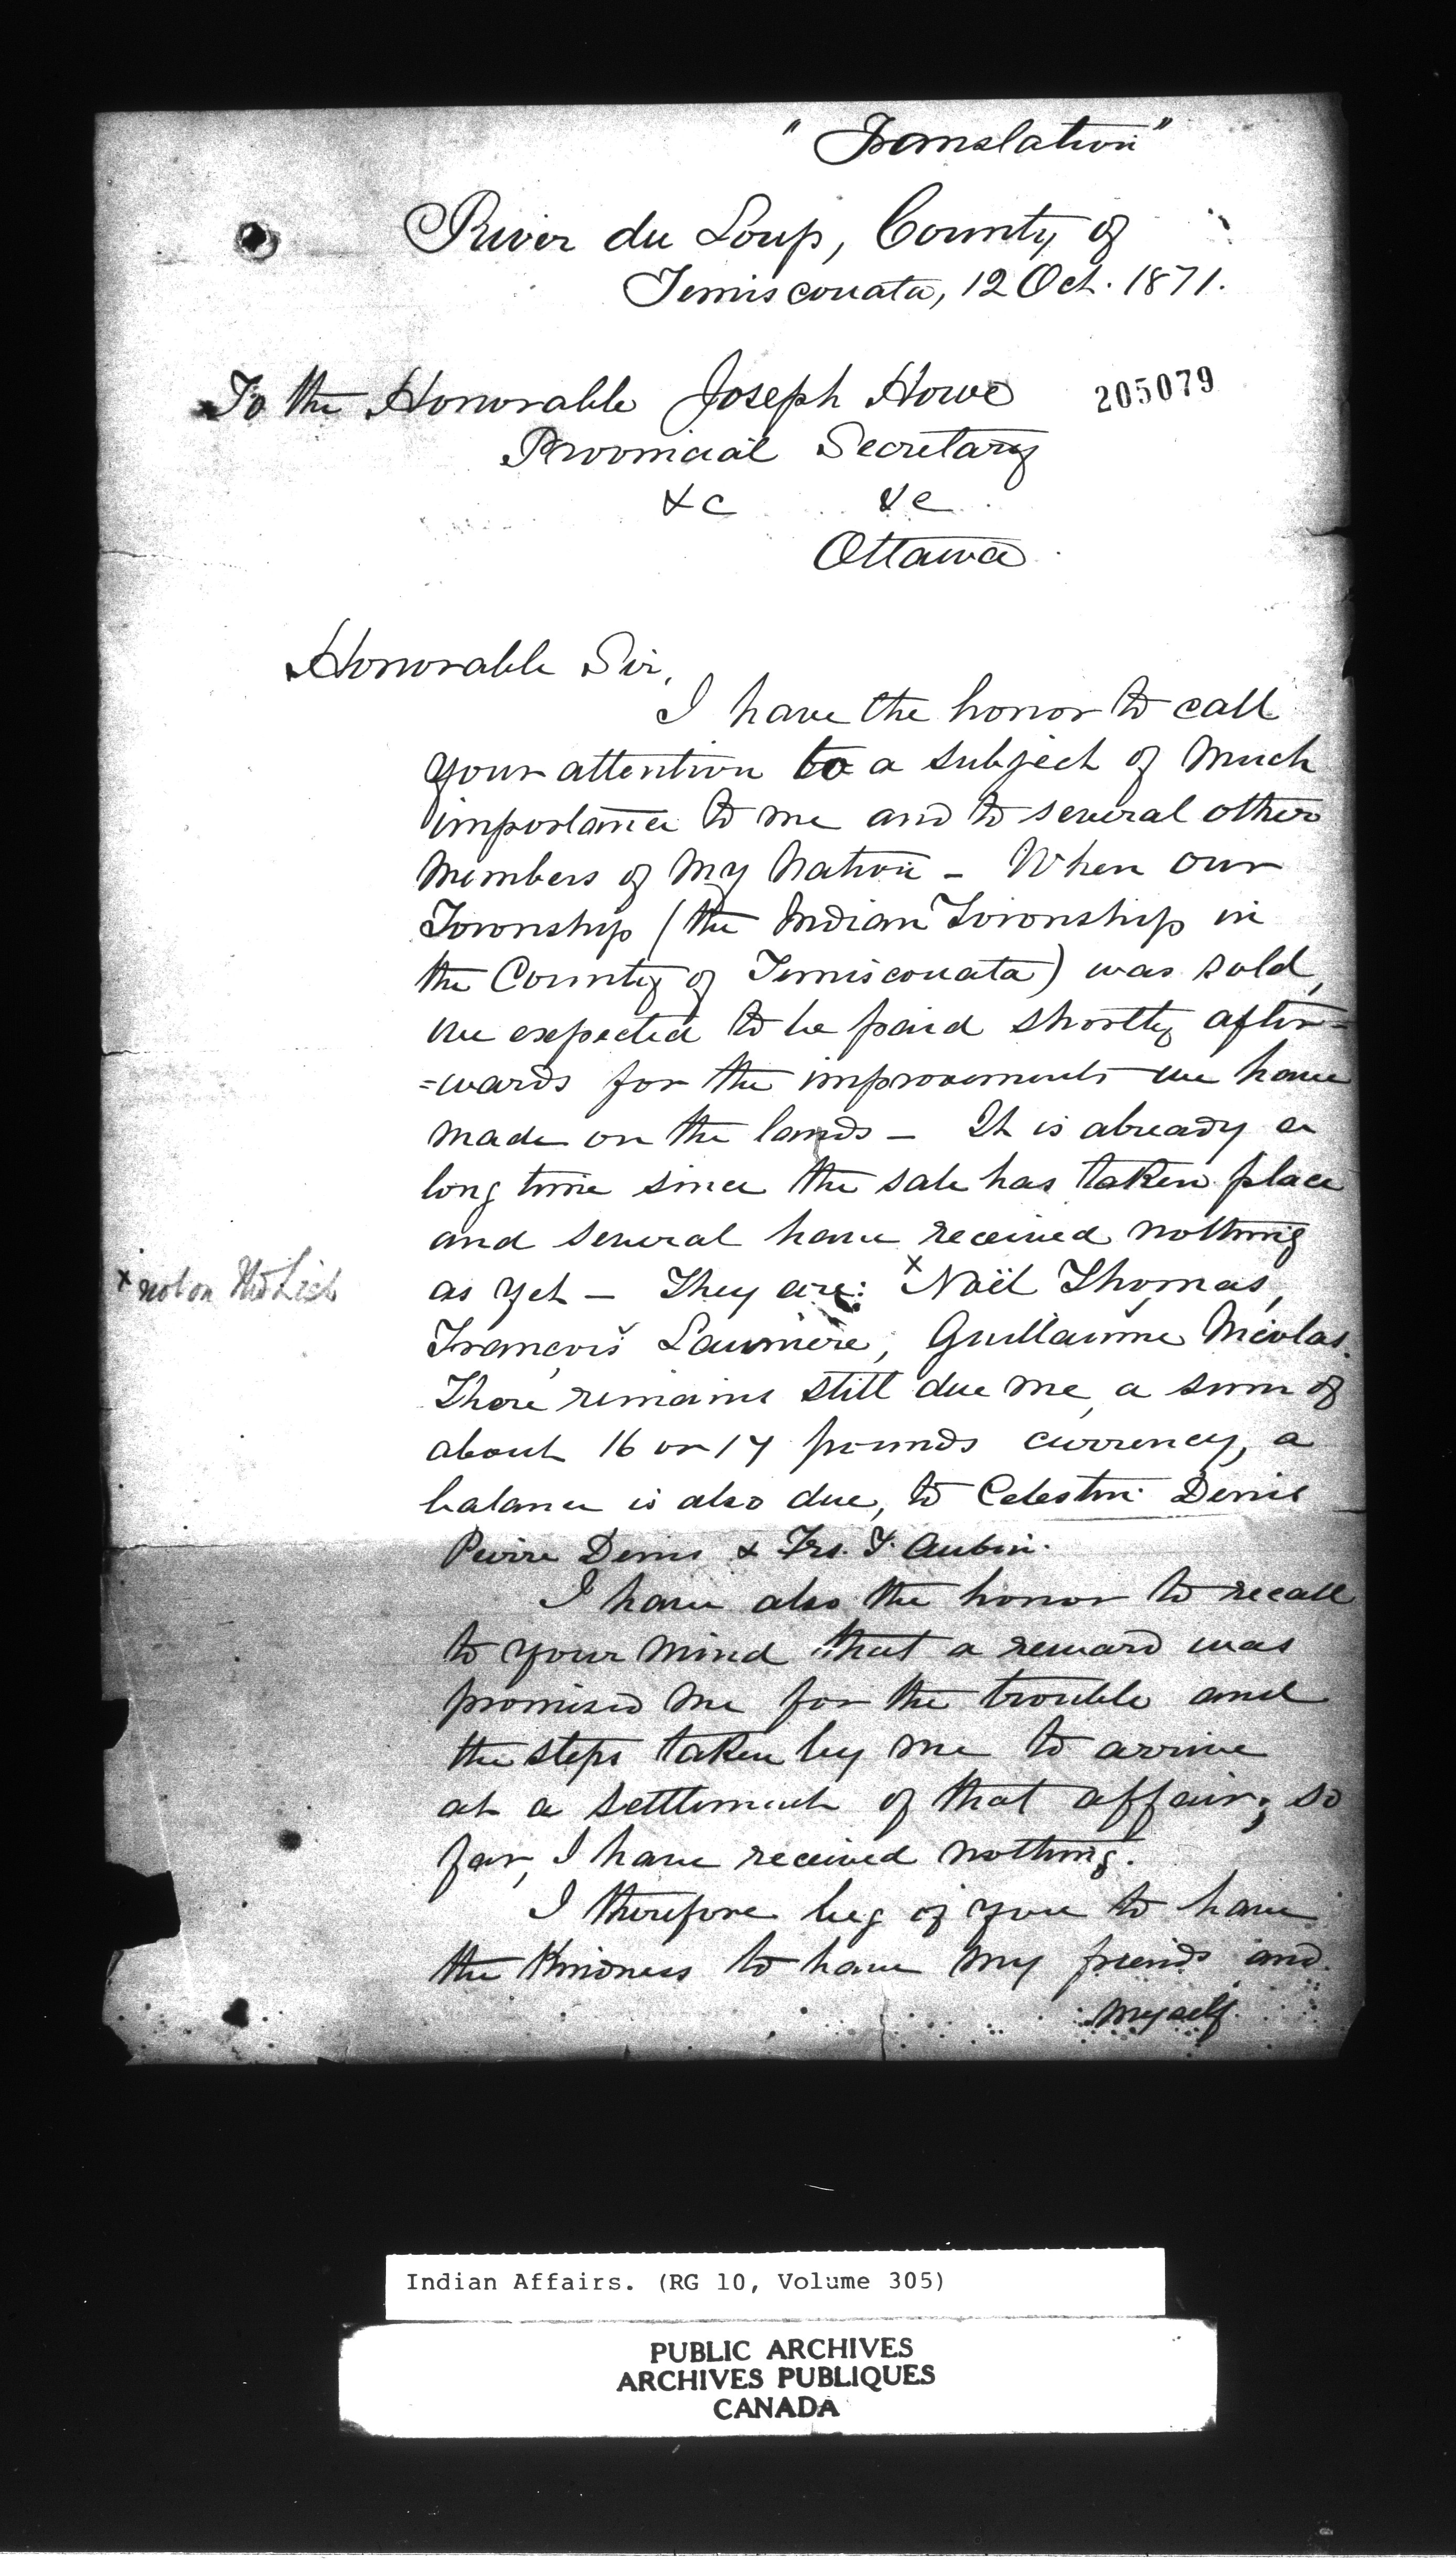 "Translation"
River du Loup, County of
Temiscouata, 12 Oct. 1871.
To the Honorable Joseph Howe
205079
Provincial Secretary
&c &c
Ottawa
Honorable Sir,
I have the honor to call
your attention to a subject of much
importance to me and to several other
members of my Nation - When our
Township (the Indian Township in
the County of Temiscouata) was sold,
we expected to be paid shortly after=
=wards for the improvements we have
made on the lands - It is already a
long time since the sale has taken place
and several have received nothing
as yet - They are: x Noël Thomas,
x not on the List
François Laumière, Guillaume Nicolas.
There remains still due me, a sum of
about 16 or 17 pounds currency, a
balance is also due, to Celestin Denis
Pierre Denis & Frs. Aubin.
I have also the honor to recall
to your mind that a reward was
promised me for the trouble and
the steps taken by me to arrive
at a settlement of that affair; so
far, I have received nothing.
I therefore beg of you to have
the Kindness to have my friends and
myself
Indian Affairs. (RG 10, Volume 305)
PUBLIC ARCHIVES
ARCHIVES PUBLIQUES
CANADA